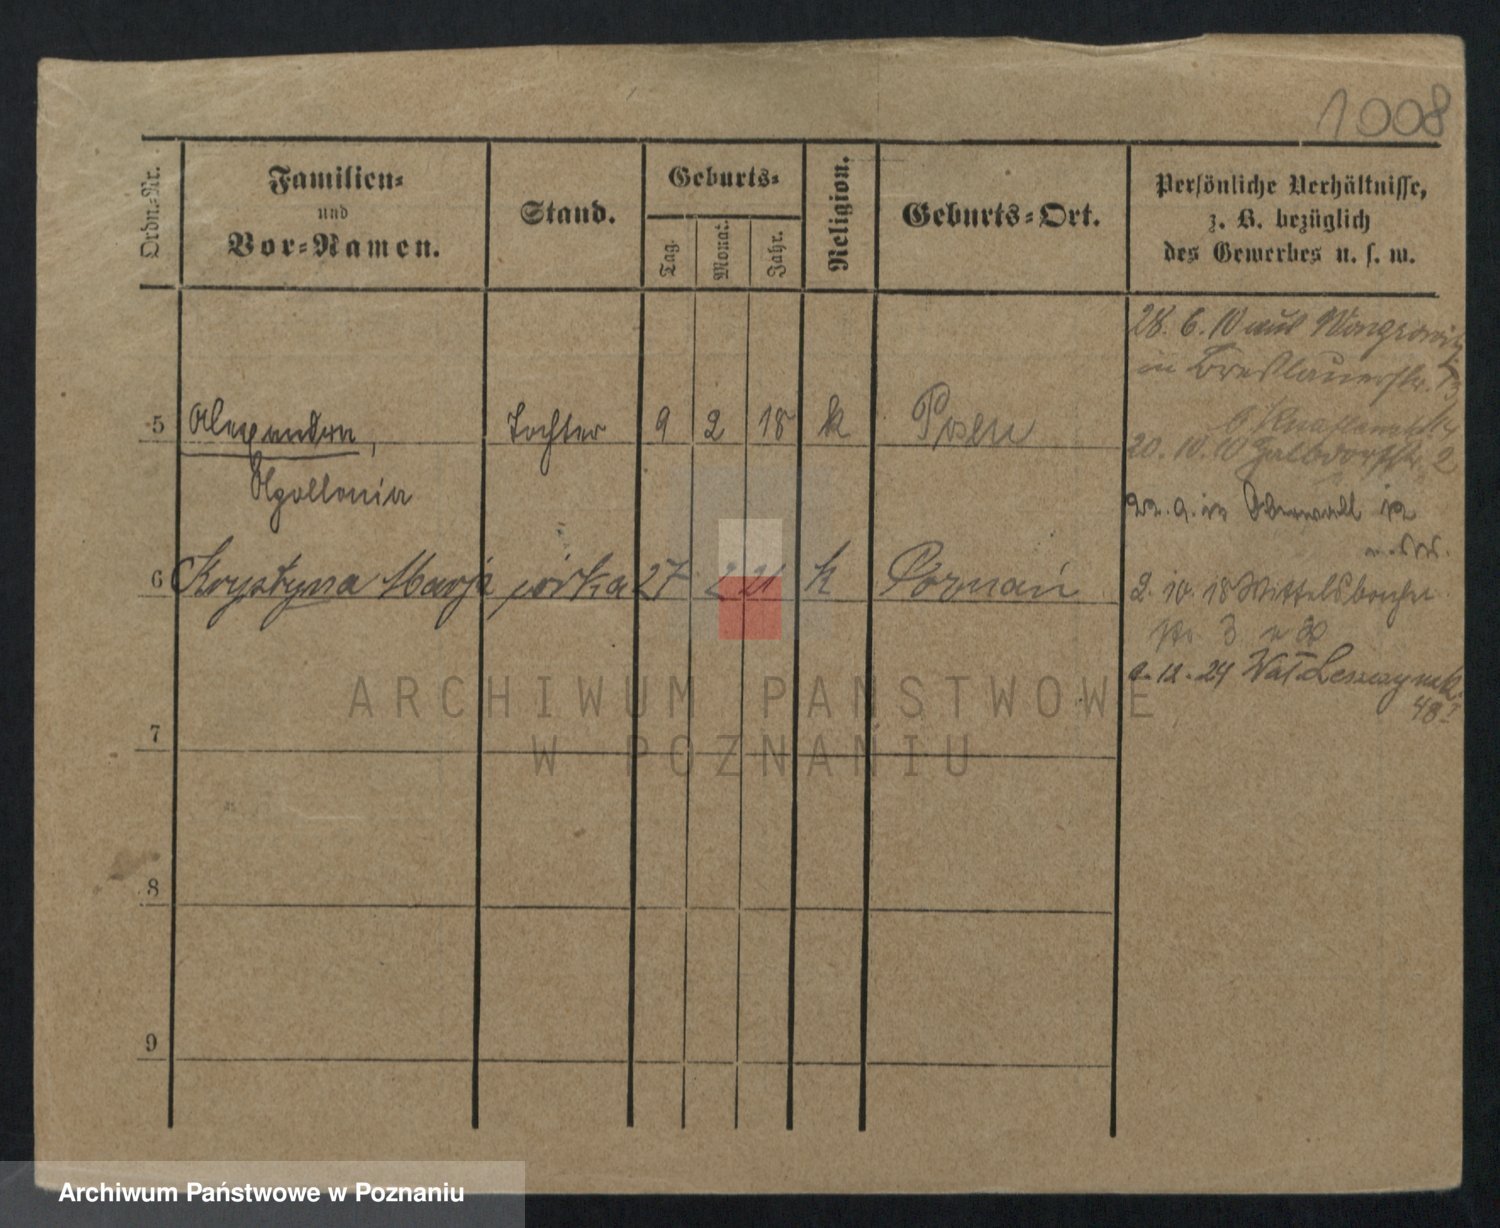 1008
Ordn.-Nr.
Familien-
und
Vor-Namen.
Stand.
Geburts-
Tag.
Monat.
Jahr.
Religion.
Geburts-Ort.
Persönliche Verhältnisse,
z. B. bezüglich
des Gewerbes u. s. w.
28. 6. 10 aus Wongrowitz
in Breslauerstr.
5 Alexandra, Tochter 9 2 18 k Posen
Apollonia
20. 10. 10 Halbdorfstr. 2
22. 9. in Oberwall
6 Krystyna Marja córka 27 2 21 k Poznań
2. 10. 18 Wittelsbacher
str. 3
12. 24 Wał Leszczyńsk.
7
8
9
ARCHIWUM PAŃSTWOWE
W POZNANIU
Archiwum Państwowe w Poznaniu